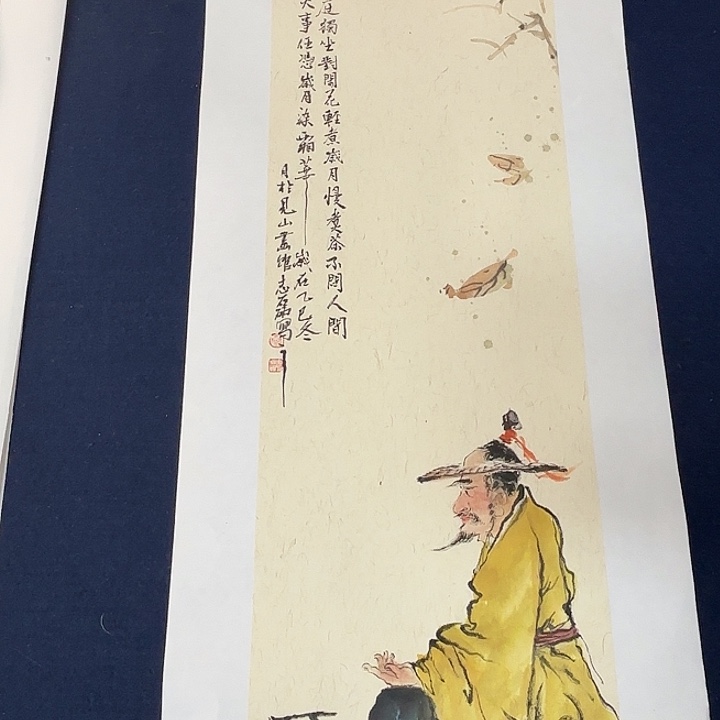 獨坐對閑花輕煮歲月慢煮茶不問人間
事任憑歲月染霜華
歲在乙巳冬
月於見山畫館志磊寫